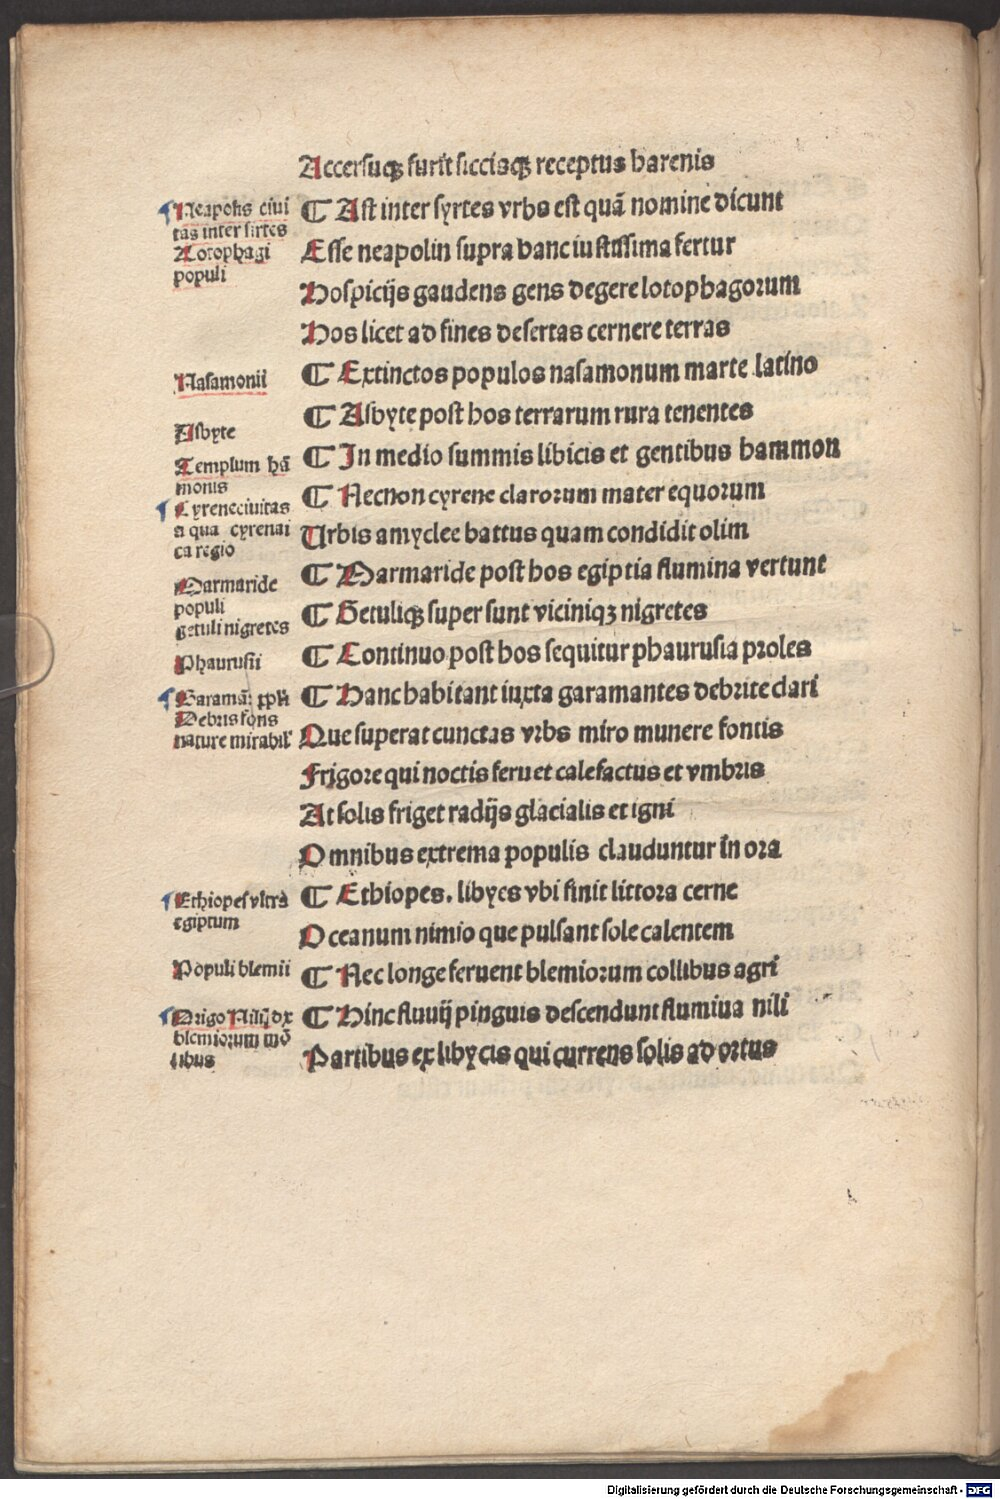 Accersuqꝫ furit siccisqꝫ receptus harenis
Neapolis ciui
tas inter sirtes
Lotophagi
populi
¶ Ast inter syrtes vrbs est quã nomine dicunt
Esse neapolin supra hanc iustissima fertur
Hospicijs gaudens gens degere lotophagorum
Hos licet ad fines desertas cernere terras
Nasamonii
¶ Extinctos populos nasamonum marte latino
Asbyte
¶ Asbyte post hos terrarum rura tenentes
Templum hã
monis
¶ In medio summis libicis et gentibus hammon
Cyreneciuitas
a qua cyrenai
ca regio
¶ Necnon cyrene clarorum mater equorum
Urbis amyclee battus quam condidit olim
Marmaride
populi
getuli nigretes
¶ Marmaride post hos egiptia flumina vertunt
¶ Getuliqꝫ super sunt viciniqꝫ nigretes
Phaurusii
¶ Continuo post hos sequitur phaurusia proles
Garamã: ppli
Debris fõns
nature mirabil'
¶ Hanc habitant iuxta garamantes debrite clari
Que superat cunctas vrbs miro munere fontis
Frigore qui noctis feruet calefactus et vmbris
At solis friget radijs glacialis et igni
Omnibus extrema populis clauduntur in ora
Ethiopes vltra
egiptum
¶ Ethiopes. libyes vbi finit littora cerne
Oceanum nimio que pulsant sole calentem
Populi blemii
¶ Nec longe feruent blemiorum collibus agri
Origo Nilij ex
blemiorum mõ
tibus
¶ Hinc fluuij pinguis descendunt flumiua nili
Partibus ex libycis qui currens solis ad ortus
Digitalisierung gefördert durch die Deutsche Forschungsgemeinschaft - DFG